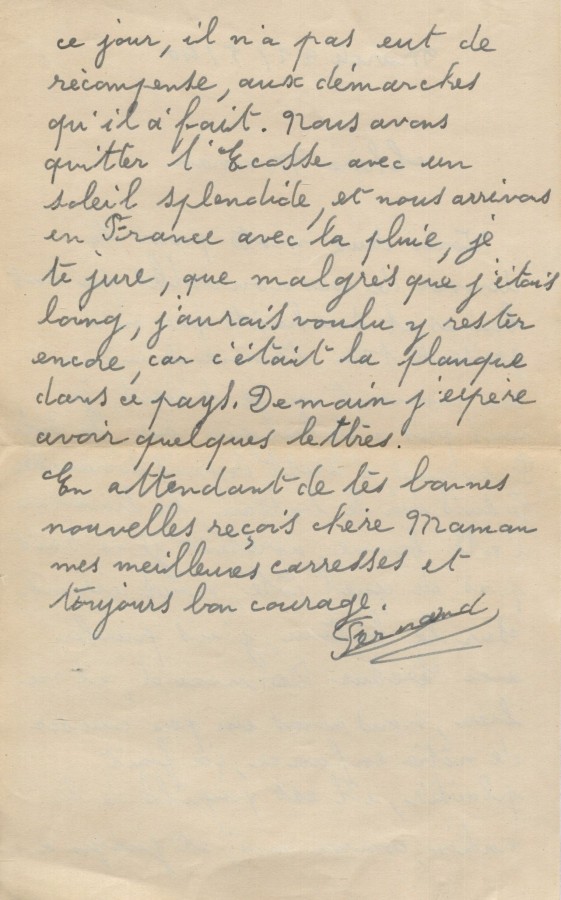 ce jour, il n'a pas eut de
récompense, aux démarches
qu'il a fait. Nous avons
quitter l'Ecosse avec un
soleil splendide, et nous arrivons
en France avec la pluie, je
te jure, que malgrès que j'étais
loing, j'aurais voulu y rester
encore, car c'était la planque
dans ce pays. Demain j'espère
avoir quelques lettres.
En attendant de tès bonnes
nouvelles reçois chère Maman
mes meilleures carresses et
toujours bon courage.
Fernand